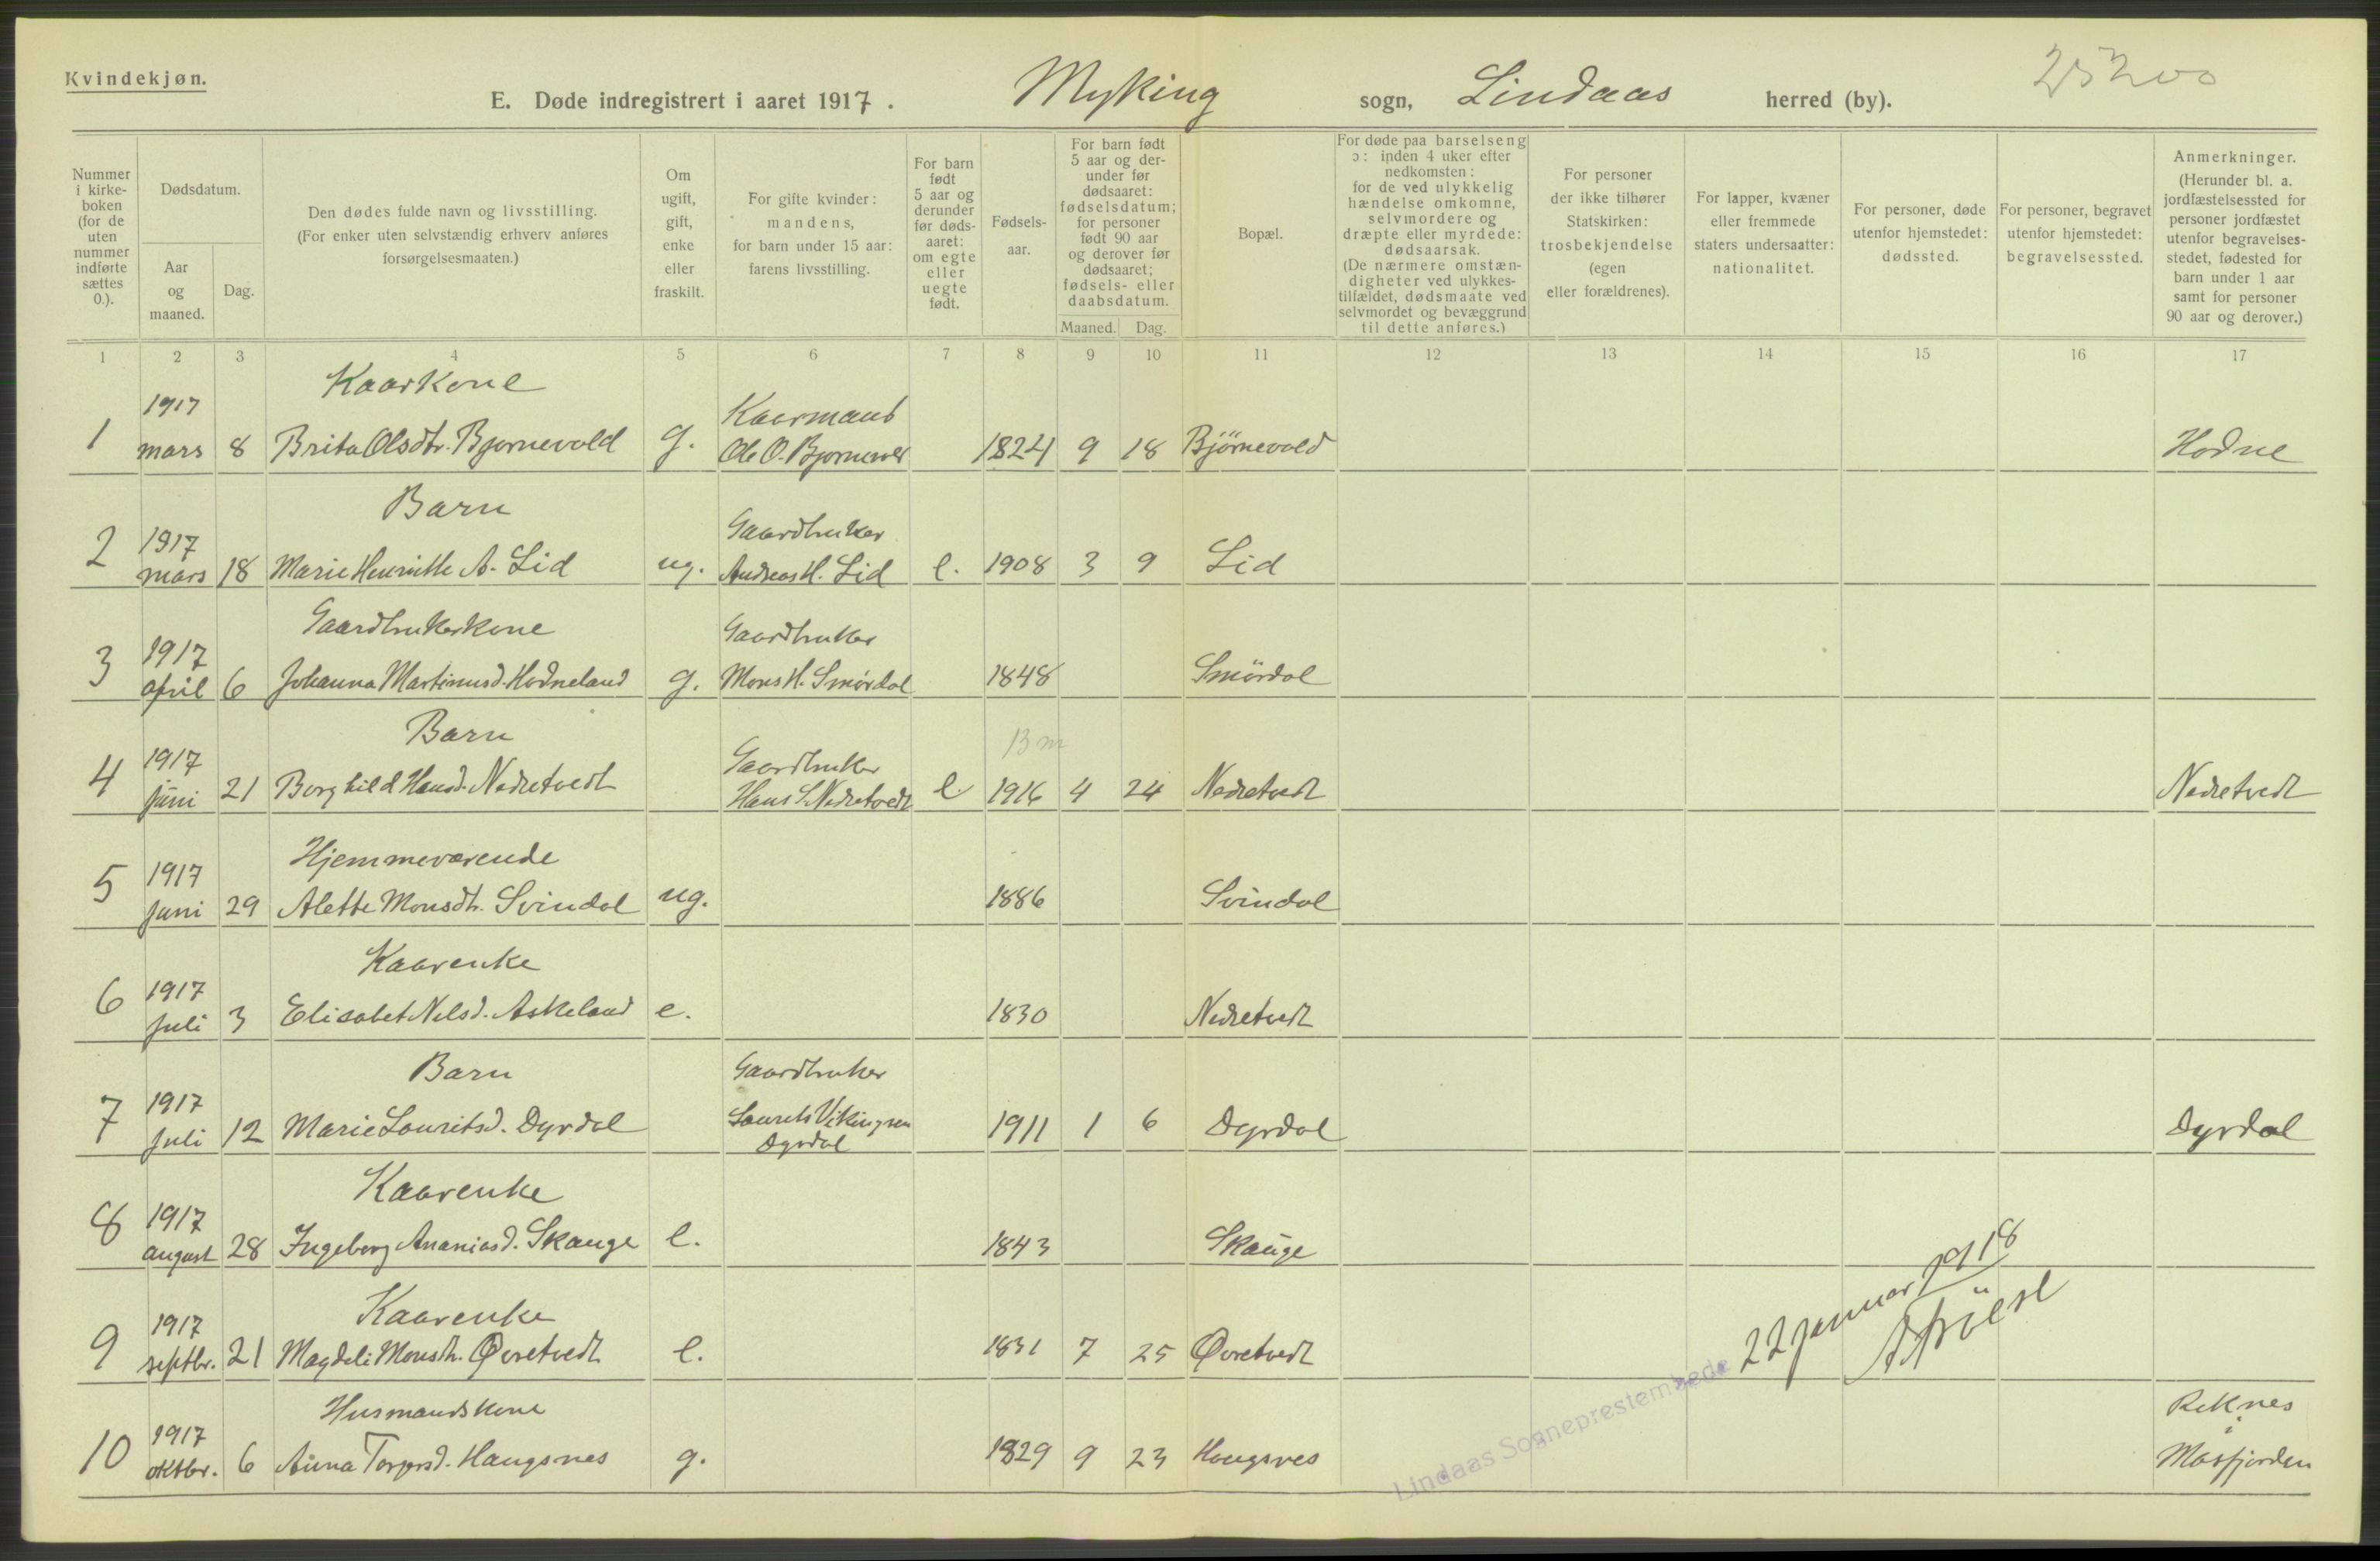 Kvindekjøn.
E. Døde indregistrert i aaret 1917. Myking sogn, Lindaas herred (by).
25200
Nummer i kirke-boken (for de uten nummer indførte sættes 0.).
Dødsdatum.
Aar og maaned.
Dag.
Den dødes fulde navn og livsstilling.
(For enker uten selvstændig erhverv anføres
forsørgelsesmaaten.)
Om ugift, gift, enke eller fraskilt.
For gifte kvinder: mandens, for barn under 15 aar: farens livsstilling.
For barn født 5 aar og derunder før døds-aaret: om egte eller uegte født.
Fødsels-aar.
For barn født 5 aar og der-under før dødsaaret: fødselsdatum; for personer født 90 aar og derover før dødsaaret; fødsels- eller daabsdatum.
Maaned. Dag.
Bopæl.
For døde paa barselseng ɔ: inden 4 uker efter nedkomsten: for de ved ulykkelig hændelse omkomne, selvmordere og dræpte eller myrdede: dødsaarsak. (De nærmere omstæn-digheter ved ulykkes-tilfældet, dødsmaate ved selvmordet og bevæggrund til dette anføres.)
For personer der ikke tilhører Statskirken: trosbekjendelse (egen eller forældrenes).
For lapper, kvæner eller fremmede staters undersaatter: nationalitet.
For personer, døde utenfor hjemstedet: dødssted.
For personer, begravet utenfor hjemstedet: begravelsessted.
Anmerkninger. (Herunder bl. a. jordfæstelsessted for personer jordfæstet utenfor begravelses-stedet, fødested for barn under 1 aar samt for personer 90 aar og derover.)
1 2 3 4 5 6 7 8 9 10 11 12 13 14 15 16 17
Kaarkone
1917 Kaarmand
1 mars 8 Brita Olsdtr. Bjornevold g. Ole O. Bjornevol 1824 9 18 Björnevold Hodne
Barn
1917 Gaardbruker
2 mars 18 Marie Henrikke A. Lid ug. Andreas H. Lid e. 1908 3 9 Lid
Gaardbrukerkone Gaardbruker
1917
3 april 6 Johanna Martinusd. Hodneland g. Mons H. Smördal 1848 Smördal
Barn 13 m
1917 Gaardbruker
4 juni 21 Borghild Hansd. Nedretvedt Hans S. Nedretvedt e. 1916 4 24 Nedretvedt Nedretvedt
Hjemmeværende
1917
5 juni 29 Alette Monsdt. Svindal ug. 1886 Svindal
Kaarenke
1917
6 juli 3 Elisabet Nelsd. Askeland e. 1830 Nedretvedt
Barn Gaardbruker
1917
7 juli 12 Marie Louritsd. Dyrdal Lourits Vikingsen 1911 1 6 Dyrdal Dyrdal
Dyrdal
Kaarenke
1917
8 august 28 Ingeborg Ananiasd. Skauge e. 1843 Skauge
Kaarenke
1917
9 septbr. 21 Magdeli Monsdt. Øvretvedt e. 1831 7 25 Øvretvedt
Husmandskone Reknes
1917 i
10 oktbr. 6 Anna Torgersd. Haugsnes g. 1829 9 23 Haugsnes Masfjorden
Lindaas Sogneprestembede 22 januar 1918